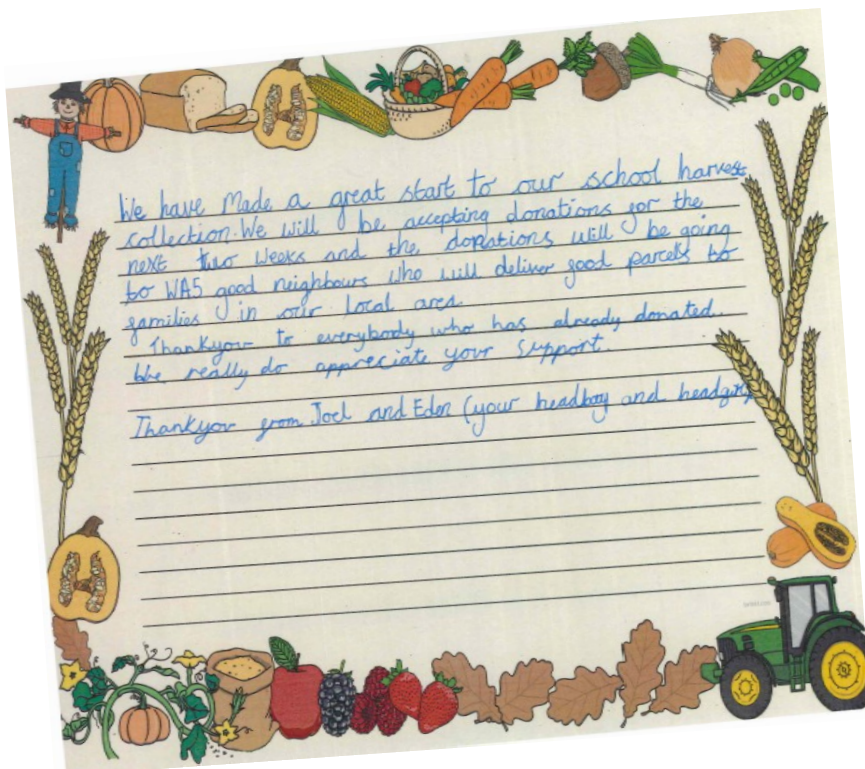 We have Made a great start to our school harvest
collection. We will be accepting donations for the
next two weeks and the donations will be going
to WA5 good neighbours who will deliver food parcels to
families in our local area.
Thankyou to everybody who has already donated.
We really do appreciate your support.
Thankyou from Joel and Eden (your headboy and headgirl)